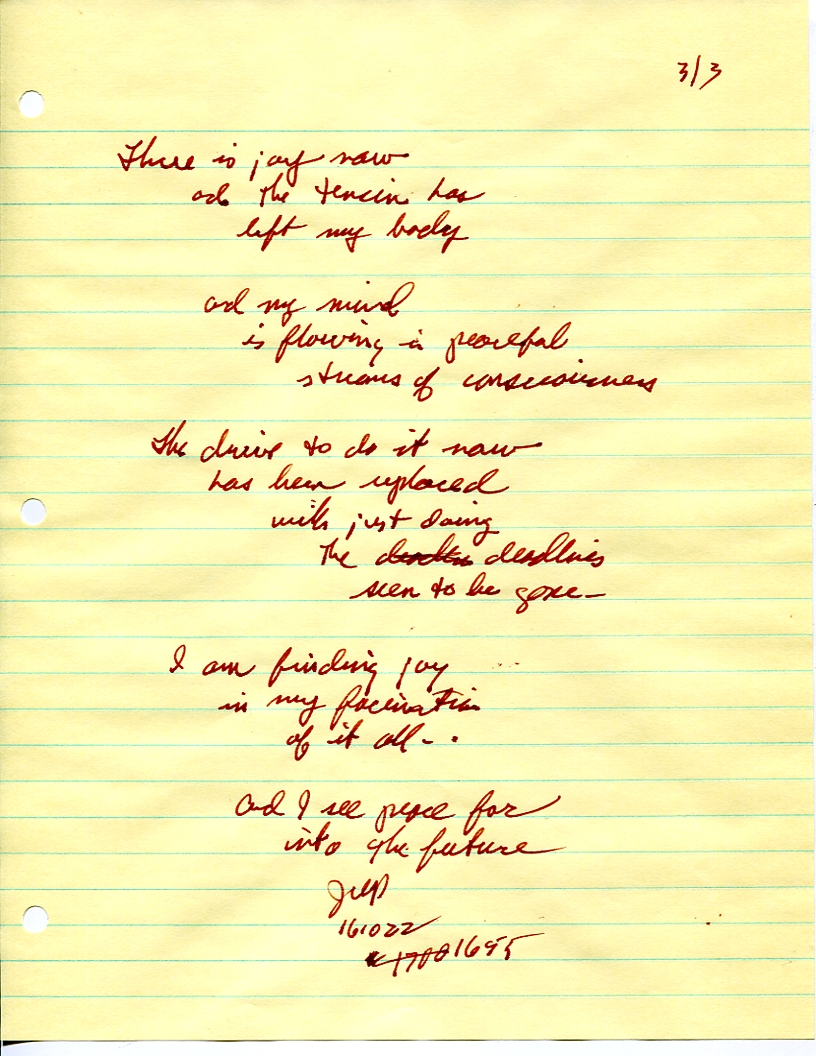 3/3
There is joy now
and the tension has
left my body
and my mind
is flowing in peaceful
streams of consciousness
The drive to do it now
has been replaced
with just doing
the deadlines
seem to be gone—
I am finding joy
in my facination
of it all - .
and I see peace far
into the future
161022
1695